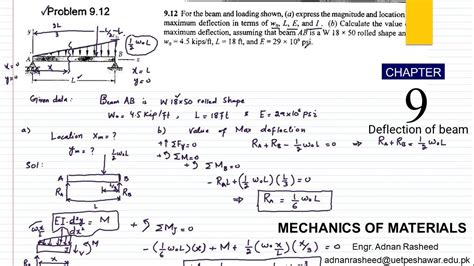 √Problem 9.12
9.12 For the beam and loading shown, (a) express the magnitude and location
maximum deflection in terms of w₀, L, E, and I. (b) Calculate the value
maximum deflection, assuming that beam AB is a W 18 × 50 rolled shape an
w₀ = 4.5 kips/ft, L = 18 ft, and E = 29 × 10⁶ psi
½ w₀L
x=0
y=0
x=L
y=0
L
Given data : Beam AB is W 18×50 rolled Shape
W₀ = 4.5 Kip/ft , L = 18 ft & E = 29×10⁶ psi
a) Location xm = ?
ym = ?
b) Value of Max deflection
Sol :
+↑ΣFy = 0
RA + RB - ½ w₀L = 0 ⇒ RA + RB = ½ w₀L
+↺ΣMB = 0
- RAL + (½ w₀L)(L/3) = 0
RA = 1/6 w₀L
EI d²y/dx² = M
+↺ΣMJ = 0
-(1/6 w₀L)(x) + M + (½ w₀x/L x)(x/3) = 0
CHAPTER
9
Deflection of beam
MECHANICS OF MATERIALS
Engr. Adnan Rasheed
adnanrasheed@uetpeshawar.edu.pk